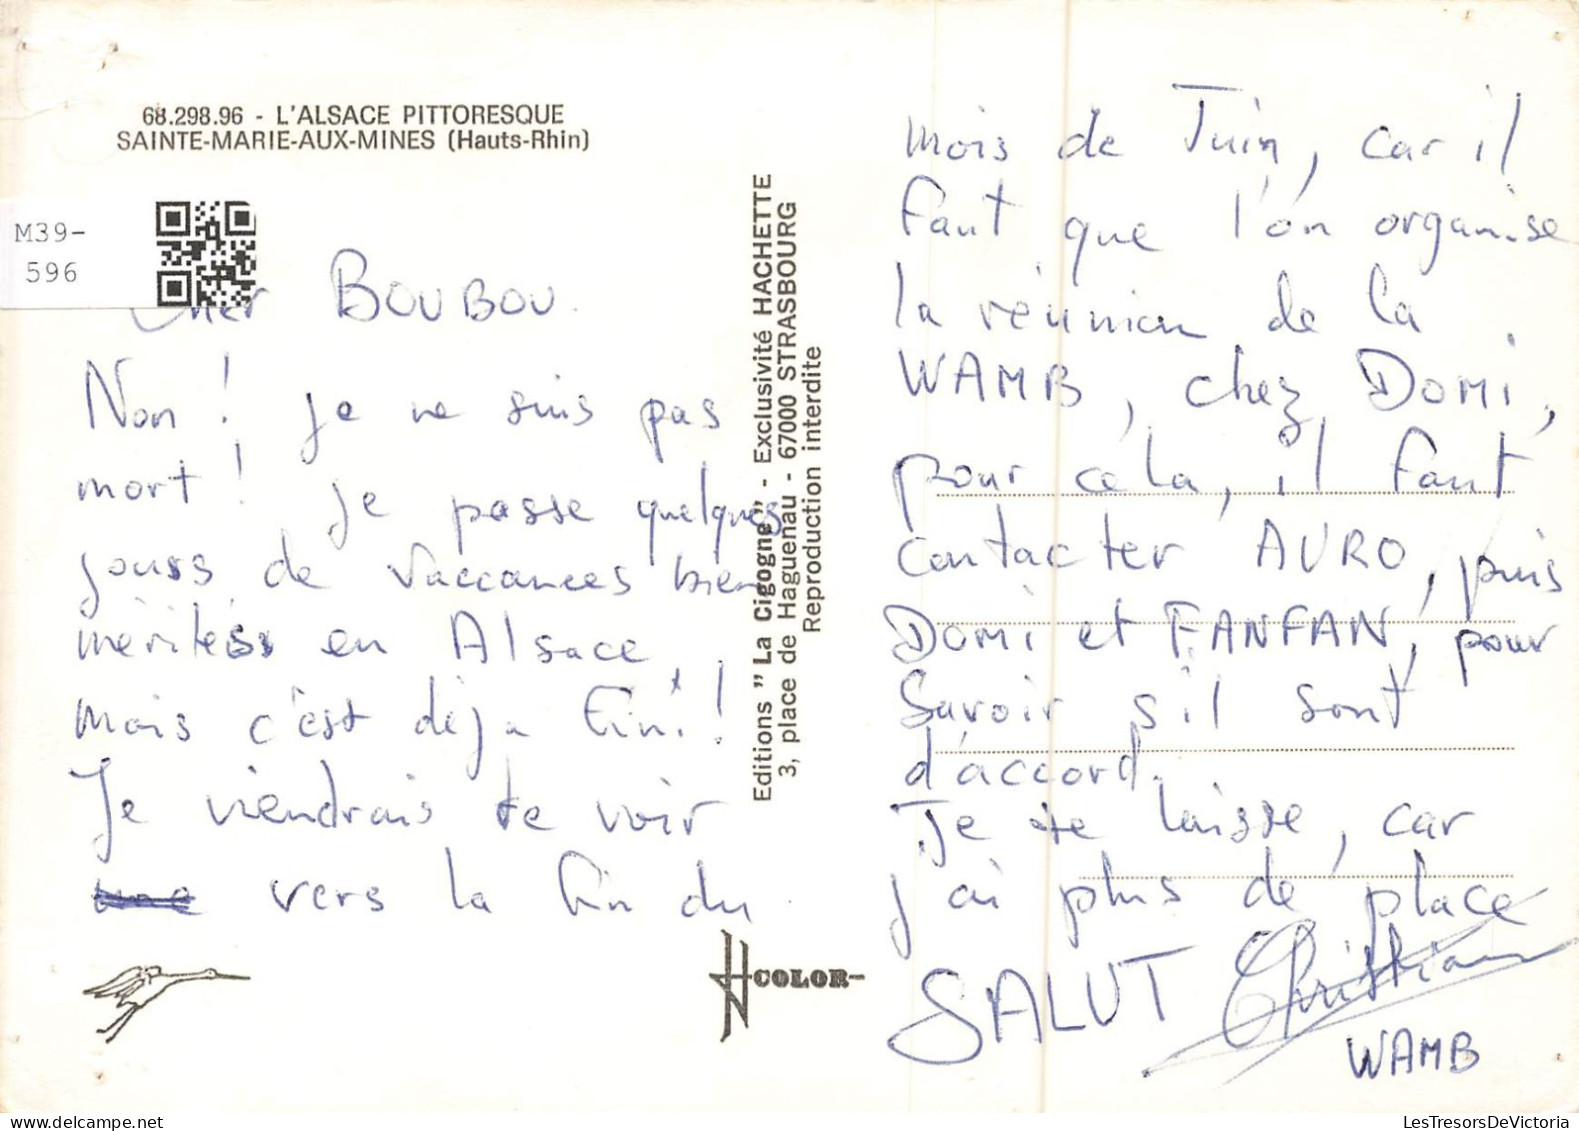 68.298.96 - L'ALSACE PITTORESQUE
SAINTE-MARIE-AUX-MINES (Hauts-Rhin)
M39-
596
Cher BOUBOU.
Non ! je ne suis pas
mort ! je passe quelques
jours de vaccances bien
méritées en Alsace,
mais c'est déjà fini !
Je viendrais te voir
vers la fin du
COLOR-
Editions "La Cigogne" - Exclusivité HACHETTE
3, place de Haguenau - 67000 STRASBOURG
Reproduction interdite
mois de Juin, car il
faut que l'on organise
la réunion de la
WAMB, chez DOMI,
pour cela, il faut
contacter AURO, puis
DOMI et FANFAN, pour
savoir s'il sont
d'accord.
Je te laisse, car
j'ai plus de place
SALUT Christian
WAMB
LesTresorsDeVictoria